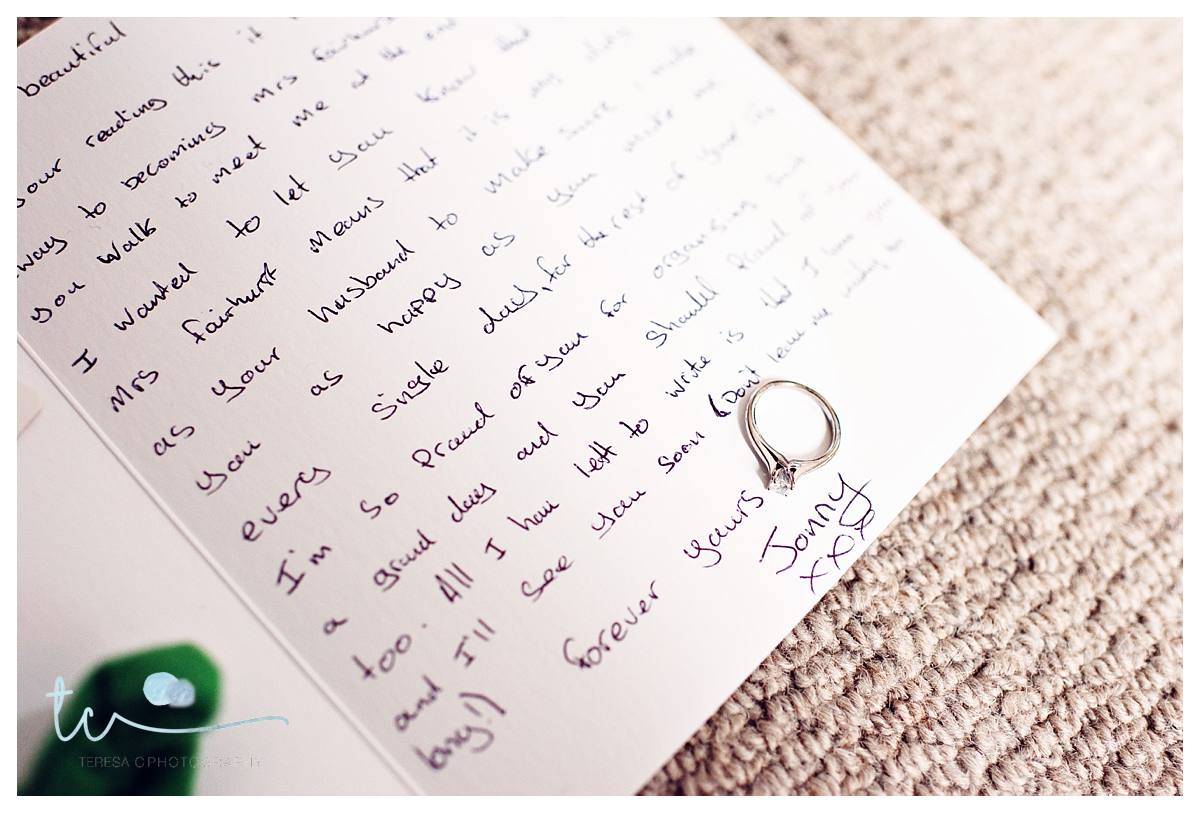 beautiful
your reading this it
way to becoming Mrs Fairhurst
you walk to meet me at the end
I wanted to let you know that
Mrs Fairhurst means that it is my duty
as your husband to make sure I make
you as happy as you make me
every single day, for the rest of your life
I'm so proud of you for organising such
a grand day and you should proud of
too. All I have left to write is that I love you
and I'll see you soon (Don't leave me waiting to
long!)
forever yours
Jonny
xxx
tc
TERESA C PHOTOGRAPHY